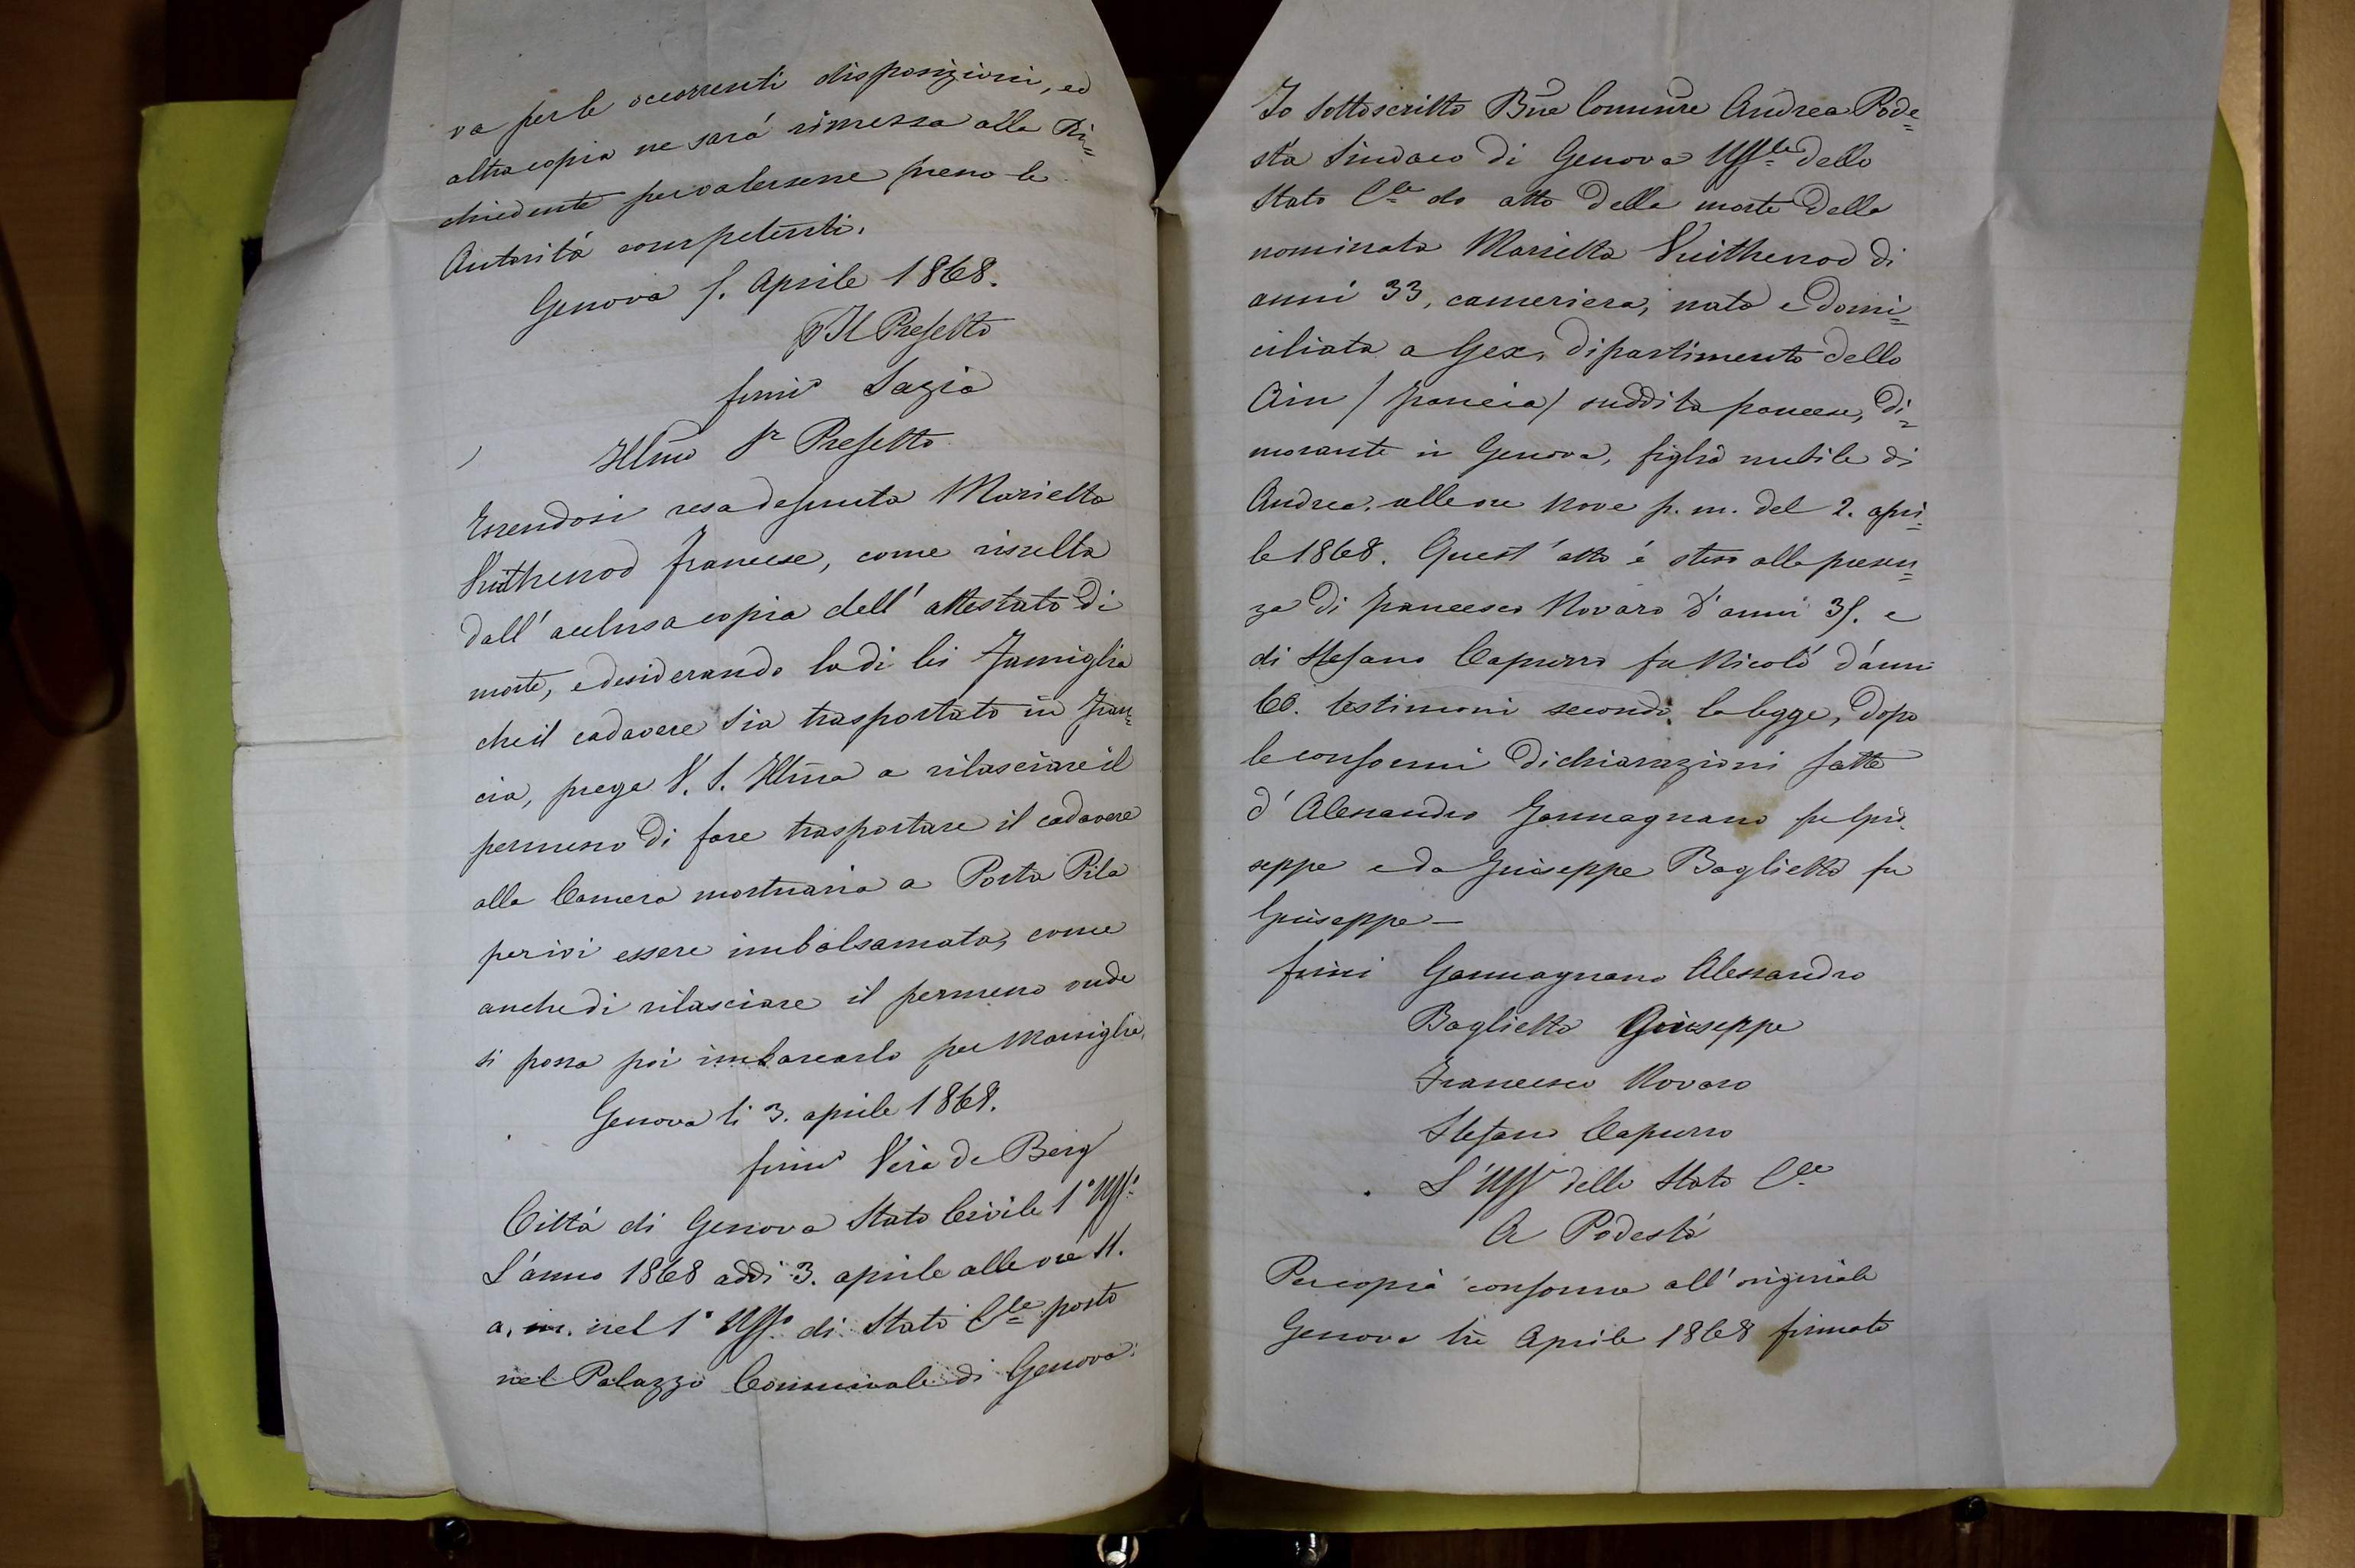 va per le occorrenti disposizioni, ed
altra copia ne sarà rimessa alla Ri=
chiedente per valersene presso le
Autorità competenti.
Genova 5. Aprile 1868.
p Il Prefetto
firm° Lagia
Illmo Sr Prefetto
Essendosi resa defunta Marietta
Vuithenod francese, come risulta
dall'acclusa copia dell'attestato di
morte, e desiderando la di lei Famiglia
che il cadavere sia trasportato in Fran=
cia, prega V. S. Illma a rilasciare il
permesso di fare trasportare il cadavere
alla Camera mortuaria a Porta Pila
per ivi essere imbalsamata, come
anche di rilasciare il permesso onde
si possa poi imbarcarlo per Marsiglia.
Genova li 3. aprile 1868.
firm° Vera de Berg
Città di Genova Stato Civile 1° Uff°
L'anno 1868 addì 3. aprile alle ore 11.
a. m. nel 1° Uff° di Stato Cle posto
nel Palazzo Comunale di Genova.
Io sottoscritto Bne Commre Andrea Pode=
stà Sindaco di Genova Uffle dello
Stato Cle do atto della morte della
nominata Marietta Vuithenod di
anni 33, cameriera, nata e domi=
ciliata a Gex, dipartimento dello
Ain / Francia / suddita francese, di=
morante in Genova, figlia nubile di
Andrea, alle ore nove p. m. del 2. apri=
le 1868. Quest'atto è steso alla presen=
za di Francesco Novaro d'anni 35. e
di Stefano Capurro fu Nicolò d'anni
60. testimoni secondo la legge, dopo
le conformi dichiarazioni fatte
d'Alessandro Gannagnano fu Giu=
seppe e da Giuseppe Baglietto fu
Giuseppe —
firmi Gannagnano Alessandro
Baglietto Giuseppe
Francesco Novaro
Stefano Capurro
L'Uff dello Stato Cle
A Podestà
Per copia conforme all'originale
Genova tre Aprile 1868 firmato